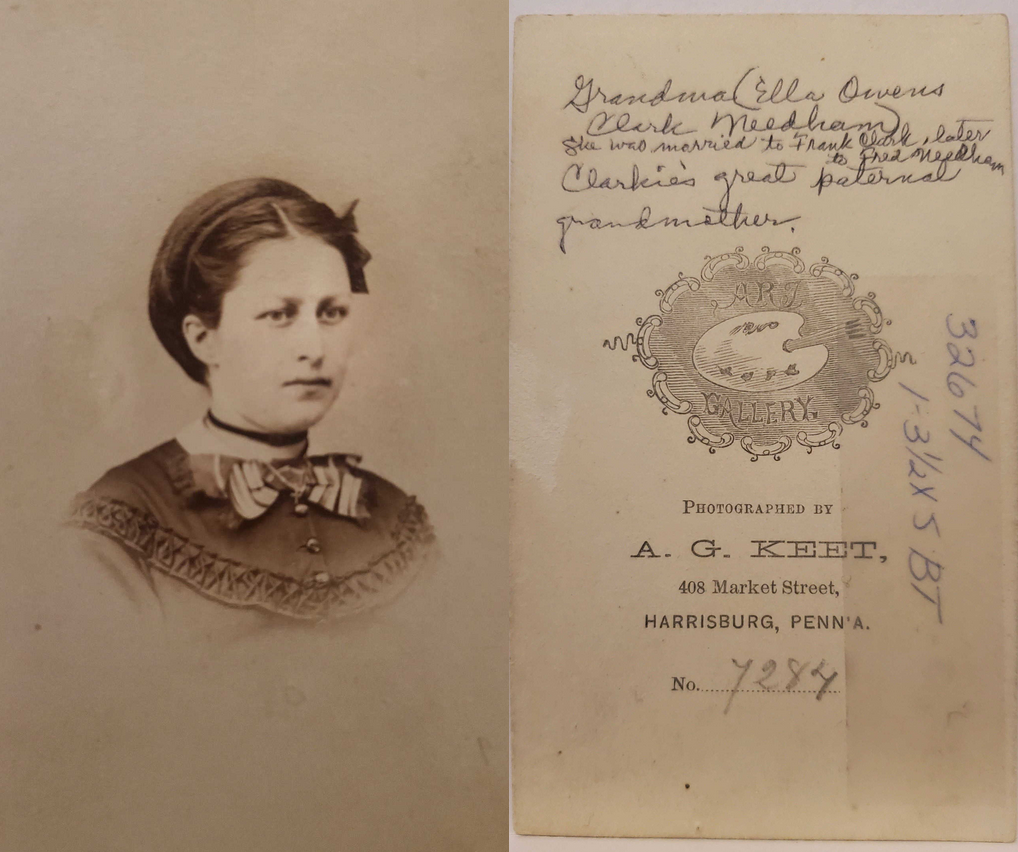 Grandma (Ella Owens
Clark Needham)
She was married to Frank Clark, later
to Fred Needham
Clarkie's great paternal
grandmother.
ART
GALLERY.
PHOTOGRAPHED BY
A. G. KEET,
408 Market Street,
HARRISBURG, PENN'A.
No. 7284
32674
1-3½ X 5 BT